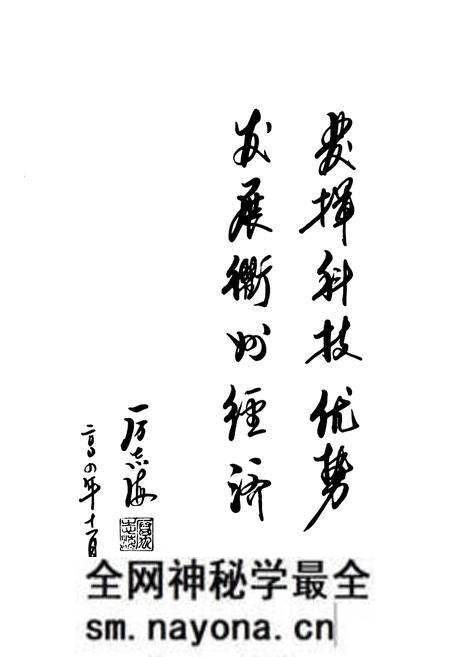 發揮科技优势
发展衢州經济
厉志海
二〇〇四年十一月
全网神秘学最全
sm.nayona.cn